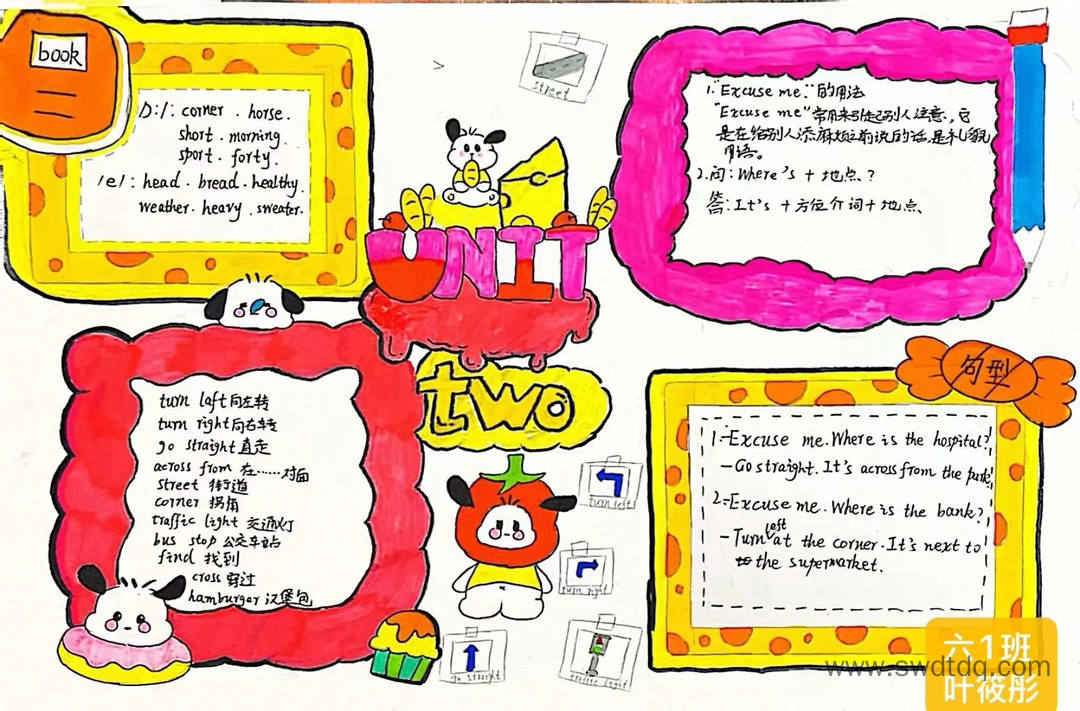 book
/ɔ:/: corner . horse.
short . morning.
sport . forty.
/e/: head . bread . healthy.
weather . heavy . sweater.
street
1."Excuse me."的用法
"Excuse me"常用来引起别人注意、它
是在给别人添麻烦之前说的话,是礼貌
用语。
2.问: Where's + 地点?
答: It's + 方位介词+地点、
UNIT
two
turn laft 向左转
turn right 向右转
go straight 直走
across from 在……对面
street 街道
corner 拐角
traffic light 交通灯
bus stop 公交车站
find 找到
cross 穿过
hamburger 汉堡包
turn left
turn right
go straight
traffic light
句型
1.-Excuse me. Where is the hospital?
-Go straight. It's across from the park.
2.-Excuse me. Where is the bank?
-Turn left at the corner. It's next to
the supermarket.
六1班
叶筱彤
www.swdtdq.com